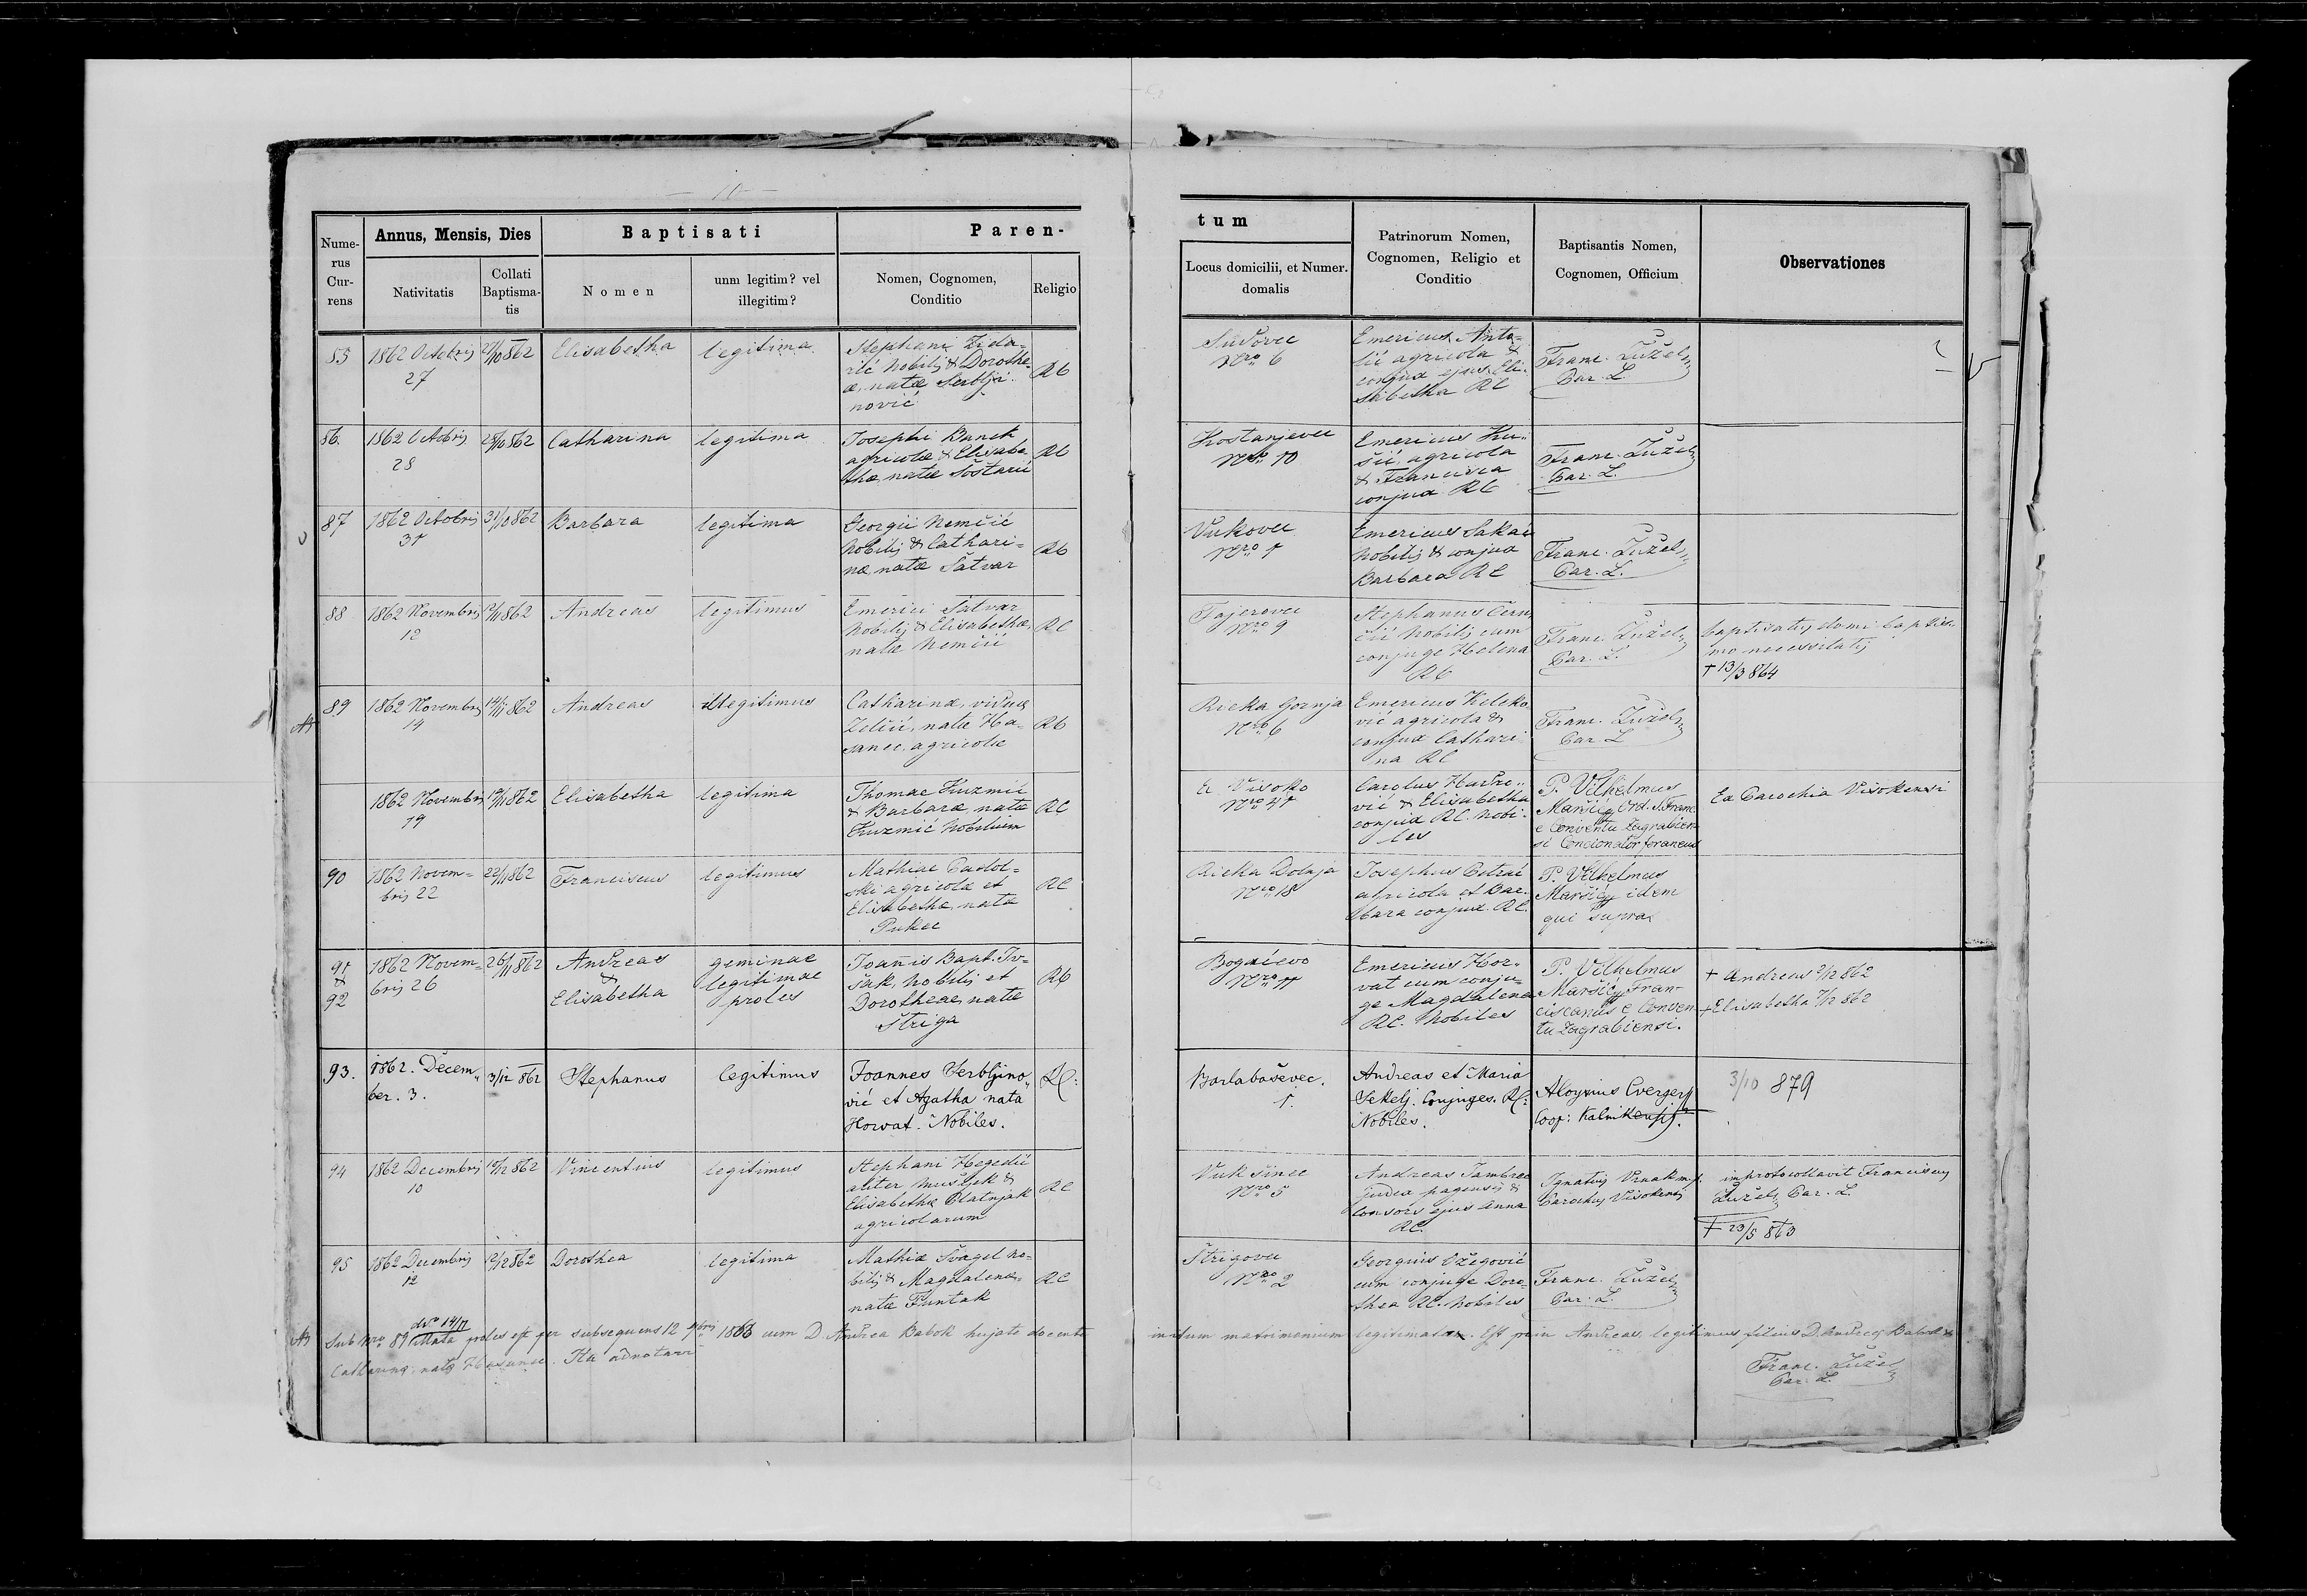 Nume-
rus
Cur-
rens
Annus, Mensis, Dies
Nativitatis
Collati
Baptisma-
tis
Baptisati
Nomen
unm legitim? vel
illegitim?
Paren-
Nomen, Cognomen,
Conditio
Religio
tum
Locus domicilii, et Numer.
domalis
Patrinorum Nomen,
Cognomen, Religio et
Conditio
Baptisantis Nomen,
Cognomen, Officium
Observationes
85
1862 Octobris
27
27/10 862
Elisabetha
legitima
Stephani Zida-
rić Nobilis & Dorothe-
æ, natæ Serblji-
nović
RC
Sudovec
Nro 6
Emericus Anto-
lić agricola &
conjux ejus Eli-
sabetha RC
Franc. Žužel
Par. L.
86.
1862 Octobris
28
28/10 862
Catharina
legitima
Josephi Banek
agricolæ & Elisabe-
thæ, natæ Šoštarić
RC
Kostanjevec
Nro 10
Emericus
agricola
& Francisca
conjux RC
Franc. Žužel
Par. L.
87
1862 Octobris
31
31/10 862
Barbara
legitima
Georgii Nemčić
Nobilis & Cathari-
næ, natæ Šatvar
RC
Vukovec
Nro 1
Emericus Sakač
Nobilis & conjux
Barbara RC
Franc. Žužel
Par. L.
88
1862 Novembris
12
12/11 862
Andreas
legitimus
Emerici Šatvar
Nobilis & Elisabethæ,
natæ Nemčić
RC
Fajerovec
Nro 9
Stephanus
Nobilis cum
conjuge Helena
RC
Franc. Žužel
Par. L.
baptisatus domi baptis-
mo necessitatis
+ 13/3 864
89
1862 Novembris
14
14/11 862
Andreas
illegitimus
Catharinæ, viduæ
natæ Ha-
sanec, agricolæ
RC
Rieka Gornja
Nro 6
Emericus Keleko-
vić agricola &
conjux Cathari-
na RC
Franc. Žužel
Par. L
1862 Novembris
19
19/11 862
Elisabetha
legitima
Thomae Kuzmić
& Barbaræ natæ
Kuzmić Nobilium
RC
Visoko
Nro 41
Carolus
vić & Elisabetha
conjux RC. Nobi-
les
P. Vilhelmus
Maršić Ord. S. Franc.
e Conventu Zagrabien-
si Concionator foraneus
Ex Parochia Visokensi
90
1862 Novem-
bris 22
22/11 862
Franciscus
legitimus
Mathiae
agricolæ et
Elisabethæ, natæ
Pukec
RC
Rieka Dolnja
Nro 18
Josephus Petrac
agricola et Bar-
bara conjux. RC.
P. Vilhelmus
Maršić idem
qui supra
91
&
92
1862 Novem-
bris 26
26/11 862
Andreas
&
Elisabetha
geminae
legitimae
proles
Joannis Bapt.
Nobilis et
Dorotheae, natæ
Štriga
RC
Bogačevo
Nro 11
Emericus Hor-
vat cum conju-
ge Magdalena
RC. Nobiles
P. Vilhelmus
Maršić Fran-
ciscanus e Conven-
tu Zagrabiensi.
+ Andreas 2/12 862
+ Elisabetha 7/12 862
93.
1862. Decem-
ber. 3.
3/12 862
Stephanus
legitimus
Joannes Serbljino-
vić et Agatha nata
Horvat. Nobiles.
RC:
Barlabaševec.
1.
Andreas et Maria
Sekelj. Conjuges. RC:
Nobiles.
Aloysius
Coop: Kalnikensis.
3/10 879
94
1862 Decembris
10
10/12 862
Vincentius
legitimus
Stephani Hegedić
aliter &
Elisabethæ Platnjak
agricolarum
RC
Vukšinec
Nro 5
Andreas Jambrec
Judex pagensis &
Consors ejus Anna
RC.
Ignatius Vrnak m.p.
Parochus Visokensis
improtocollavit Franciscus
Žužel, Par. L.
+ 23/5 863
95
1862 Decembris
12
12/12 862
Dorothea
legitima
Mathiæ Švagel No-
bilis & Magdalenæ,
natæ Funtak
RC
Štrigovec
Nro 2
Georgius Ožegović
cum conjuge Doro-
thea RC. Nobiles
Franc. Žužel
Par. L.
Sub Nro 89 nata proles est per subsequens 12 1863 cum D. Andrea Babok hujate docente initum matrimonium legitimata. Est proin Andreas, legitimus filius D. Andreæ Babok &
Catharinæ natæ Hasanec. Ita adnotavi
Franc. Žužel
Par. L.